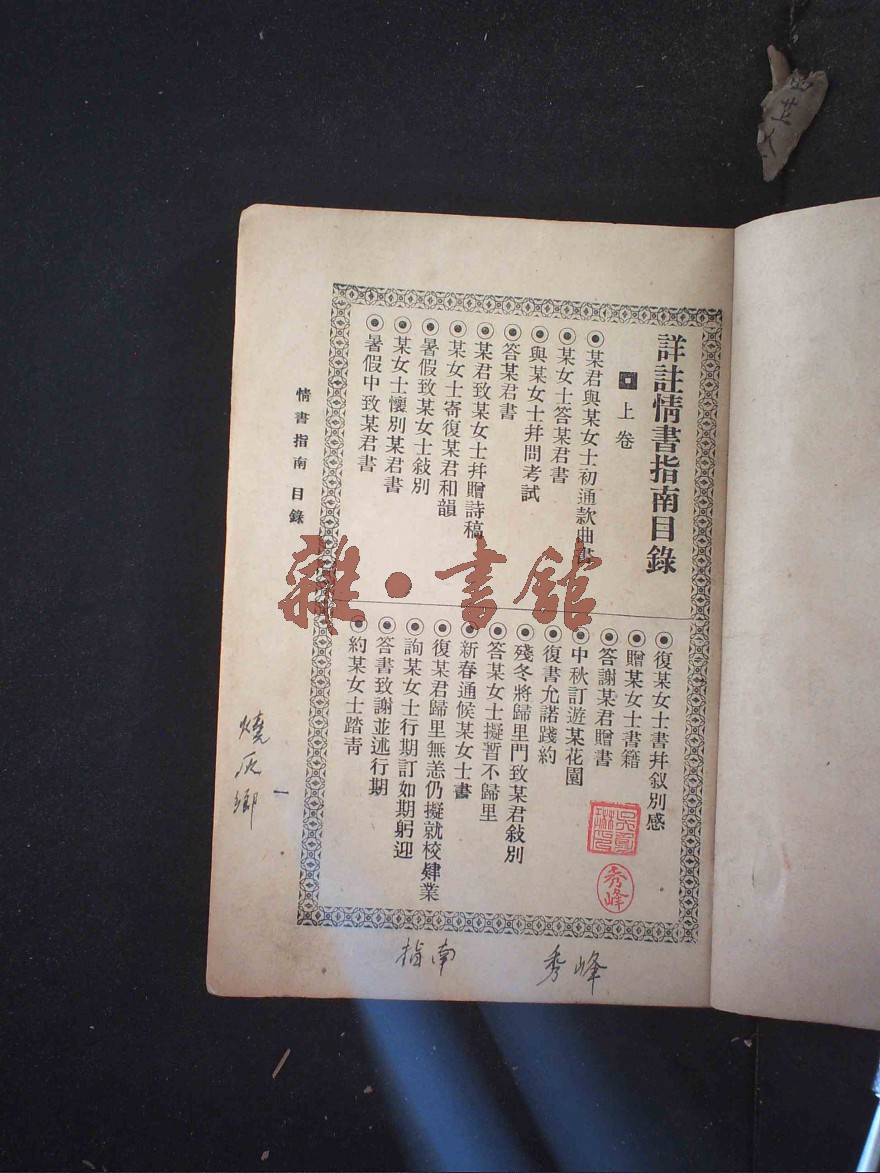 詳註情書指南目錄
上卷
某君與某女士初通款曲書
某女士答某君書
與某女士并問考試
答某君書
某君致某女士并贈詩稿
某女士寄復某君和韻
暑假致某女士敍別
某女士懷別某君書
暑假中致某君書
復某女士書并叙別感
贈某女士書籍
答謝某君贈書
中秋訂遊某花園
復書允諾踐約
殘冬將歸里門致某君敍別
答某女士擬暫不歸里
新春通候某女士書
復某君歸里無恙仍擬就校肄業
詢某女士行期訂如期躬迎
答書致謝並述行期
約某女士踏青
情書指南 目錄
一
燒灰鄉
指南
秀峰
秀峰
雜·書館